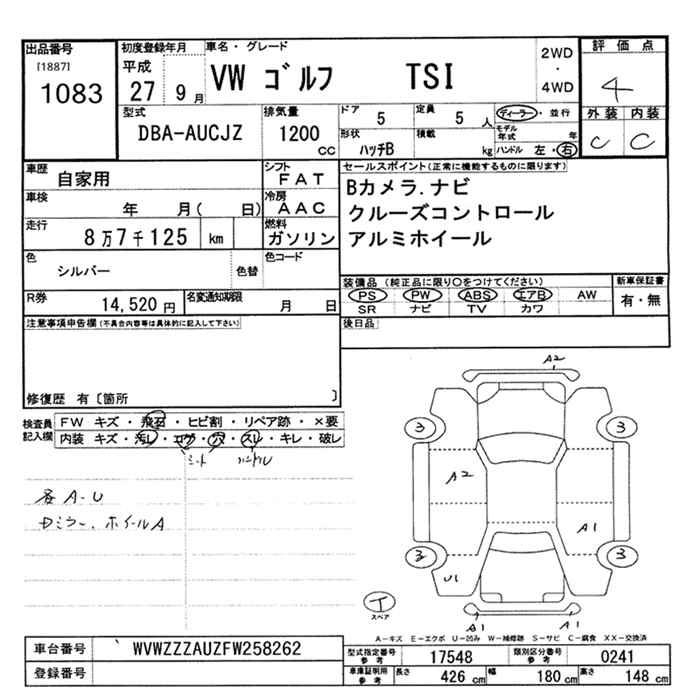 出品番号 初度登録年月 車名・グレード 評価点
[1887] 平成 2WD
1083 27 9月 VW ゴルフ TSI ・ 4
4WD
型式 排気量 ドア 5 定員 5人 ディーラー・並行 外装 内装
DBA-AUCJZ 1200cc 形状 ハッチB 積載 kg モデル年式 年 C C
ハンドル 左・右
車歴 自家用 シフト FAT セールスポイント(正常に機能するものに限ります)
車検 年 月( 日) 冷房 AAC Bカメラ.ナビ
クルーズコントロール
走行 8万7千125 km 燃料 ガソリン アルミホイール
色 シルバー 色替 色コード
装備品 (純正品に限り〇をつけてください) 新車保証書
R券 14,520円 名変通知期限 月 日 PS PW ABS エアB AW 有・無
SR ナビ TV カワ
注意事項申告欄(不具合内容等は具体的に記入して下さい) 後日品
修復歴 有〔箇所 〕
検査員 FW キズ・飛石・ヒビ割・リペア跡・×要
記入欄 内装 キズ・汚レ・コゲ・穴・スレ・キレ・破レ
シート ハンドル
A-U
ミラー、ホイールA
A2
3 3
A2
A1
3 3
U1
T
スペア
A1 A1
A-キズ E-エクボ U-凹み W-補修跡 S-サビ C-腐食 XX-交換済
車台番号 WVWZZZAUZFW258262 型式指定番号 参考 17548 類別区分番号 参考 0241
登録番号 車庫証明用 参考 長さ 426cm 幅 180cm 高さ 148cm